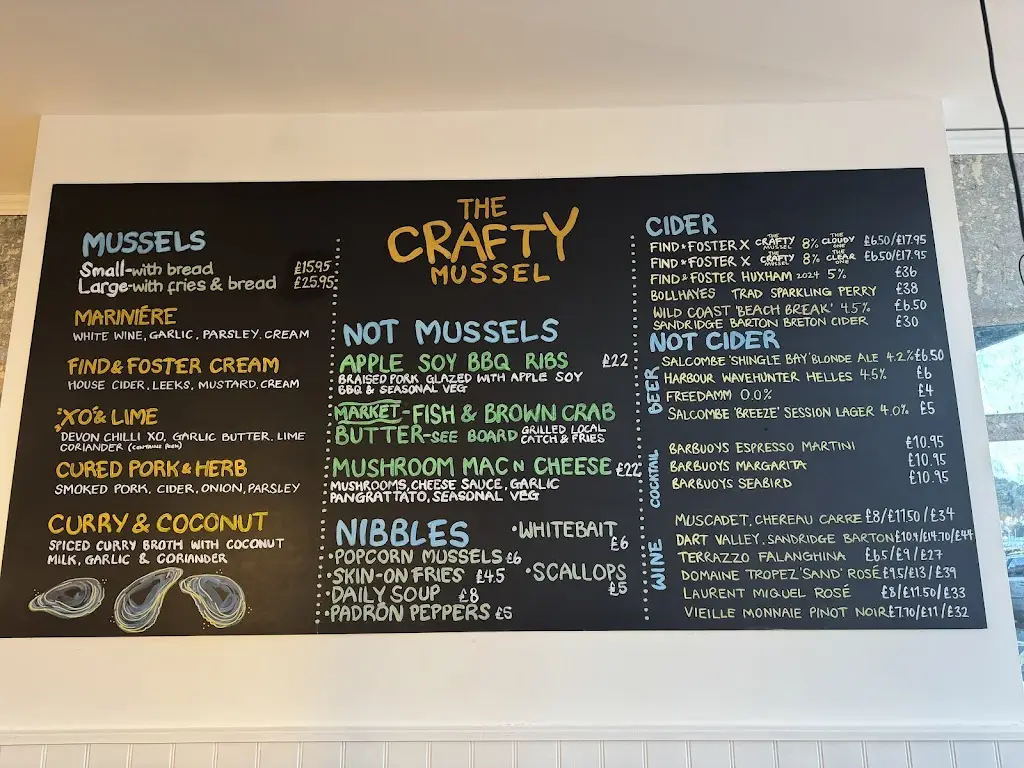 THE
CRAFTY
MUSSEL
MUSSELS
Small-with bread £15.95
Large-with fries & bread £25.95
MARINIÉRE
WHITE WINE, GARLIC, PARSLEY, CREAM
FIND & FOSTER CREAM
HOUSE CIDER, LEEKS, MUSTARD, CREAM
'XO' & LIME
DEVON CHILLI XO, GARLIC BUTTER, LIME
CORIANDER
CURED PORK & HERB
SMOKED PORK, CIDER, ONION, PARSLEY
CURRY & COCONUT
SPICED CURRY BROTH WITH COCONUT
MILK, GARLIC & CORIANDER
NOT MUSSELS
APPLE SOY BBQ RIBS £22
BRAISED PORK GLAZED WITH APPLE SOY
BBQ & SEASONAL VEG
MARKET-FISH & BROWN CRAB
BUTTER-SEE BOARD GRILLED LOCAL
CATCH & FRIES
MUSHROOM MAC N CHEESE £22
MUSHROOMS, CHEESE SAUCE, GARLIC
PANGRATTATO, SEASONAL VEG
NIBBLES
•POPCORN MUSSELS £6
•SKIN-ON FRIES £4.5
•DAILY SOUP £8
•PADRÓN PEPPERS £5
•WHITEBAIT
£6
•SCALLOPS
£5
CIDER
FIND & FOSTER X THE CRAFTY MUSSEL 8% THE CLOUDY ONE £6.50/£17.95
FIND & FOSTER X THE CRAFTY MUSSEL 8% THE CLEAR ONE £6.50/£17.95
FIND & FOSTER HUXHAM 2024 5% £36
BOLLHAYES TRAD SPARKLING PERRY £38
WILD COAST 'BEACH BREAK' 4.5% £6.50
SANDRIDGE BARTON BRETON CIDER £30
NOT CIDER
BEER
SALCOMBE 'SHINGLE BAY' BLONDE ALE 4.2% £6.50
HARBOUR WAVEHUNTER HELLES 4.5% £6
FREEDAMM 0.0% £4
SALCOMBE 'BREEZE' SESSION LAGER 4.0% £5
COCKTAIL
BARBUOYS ESPRESSO MARTINI £10.95
BARBUOYS MARGARITA £10.95
BARBUOYS SEABIRD £10.95
WINE
MUSCADET, CHEREAU CARRE £8/£11.50/£34
DART VALLEY, SANDRIDGE BARTON £10.4/£14.70/£44
TERRAZZO FALANGHINA £6.5/£9/£27
DOMAINE TROPEZ 'SAND' ROSÉ £9.5/£13/£39
LAURENT MIQUEL ROSÉ £8/£11.50/£33
VIEILLE MONNAIE PINOT NOIR £7.70/£11/£32